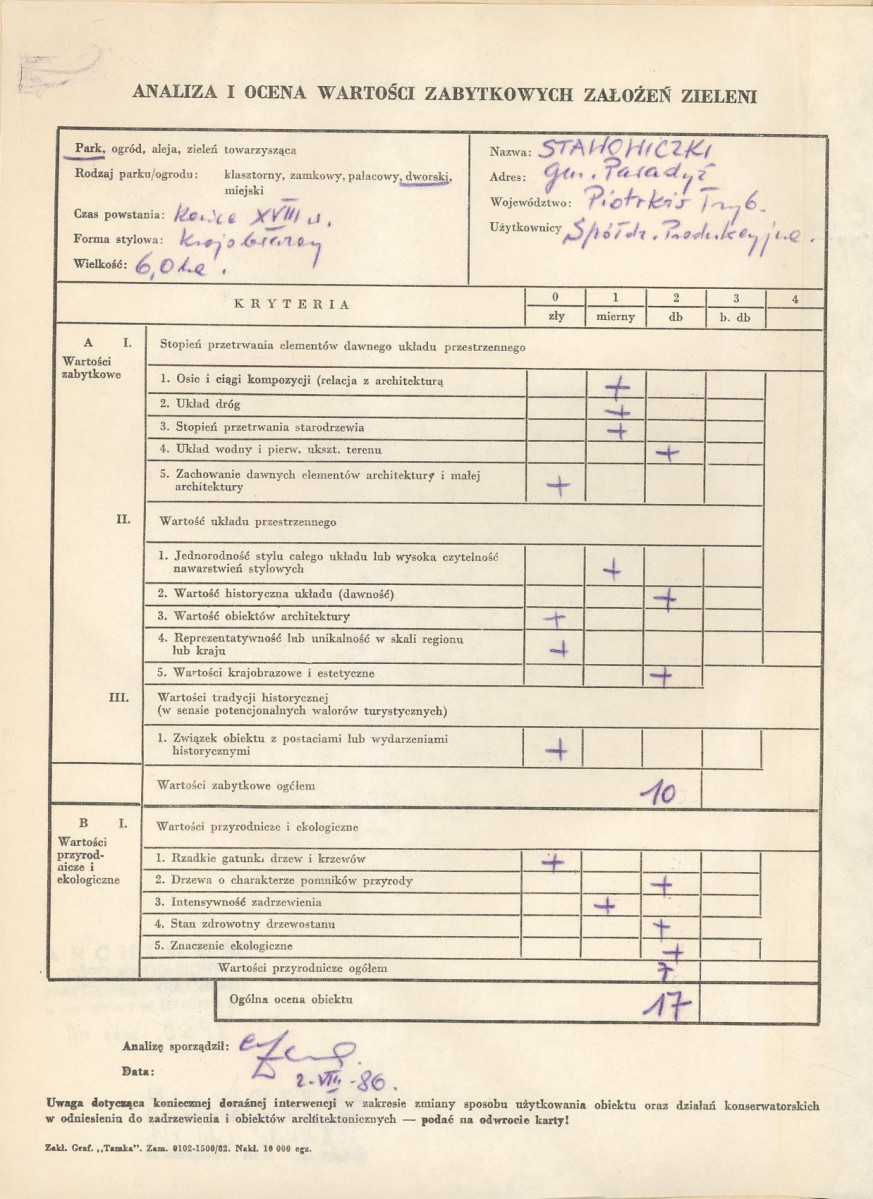 ANALIZA I OCENA WARTOŚCI ZABYTKOWYCH ZAŁOŻEŃ ZIELENI
Park, ogród, aleja, zieleń towarzysząca
Rodzaj parku/ogrodu: klasztorny, zamkowy, pałacowy, dworski,
miejski
Czas powstania: Koniec XVIII w.
Forma stylowa: Krajobrazowy
Wielkość: 6,0 ha.
Nazwa: STAWOWICZKI
Adres: gm. Paradyż
Województwo: Piotrków Tryb.
Użytkownicy Spółdz. Produkcyjna.
KRYTERIA 0 1 2 3 4
zły mierny db b. db
A I. Stopień przetrwania elementów dawnego układu przestrzennego
Wartości
zabytkowe
1. Osie i ciągi kompozycji (relacja z architekturą +
2. Układ dróg +
3. Stopień przetrwania starodrzewia +
4. Układ wodny i pierw. ukszt. terenu +
5. Zachowanie dawnych elementów architektury i małej
architektury +
II. Wartość układu przestrzennego
1. Jednorodność stylu całego układu lub wysoka czytelność
nawarstwień stylowych +
2. Wartość historyczna układu (dawność) +
3. Wartość obiektów architektury +
4. Reprezentatywność lub unikalność w skali regionu
lub kraju +
5. Wartości krajobrazowe i estetyczne +
III. Wartości tradycji historycznej
(w sensie potencjonalnych walorów turystycznych)
1. Związek obiektu z postaciami lub wydarzeniami
historycznymi +
Wartości zabytkowe ogółem 10
B I. Wartości przyrodnicze i ekologiczne
Wartości
przyrod-
nicze i
ekologiczne
1. Rzadkie gatunki drzew i krzewów +
2. Drzewa o charakterze pomników przyrody +
3. Intensywność zadrzewienia +
4. Stan zdrowotny drzewostanu +
5. Znaczenie ekologiczne +
Wartości przyrodnicze ogółem 7
Ogólna ocena obiektu 17
Analizę sporządził:
Data: 2.VIII.86.
Uwaga dotycząca koniecznej doraźnej interwencji w zakresie zmiany sposobu użytkowania obiektu oraz działań konserwatorskich
w odniesieniu do zadrzewienia i obiektów architektonicznych — podać na odwrocie karty!
Zakł. Graf. „Tamka". Zam. 0102-1500/82. Nakł. 10 000 egz.